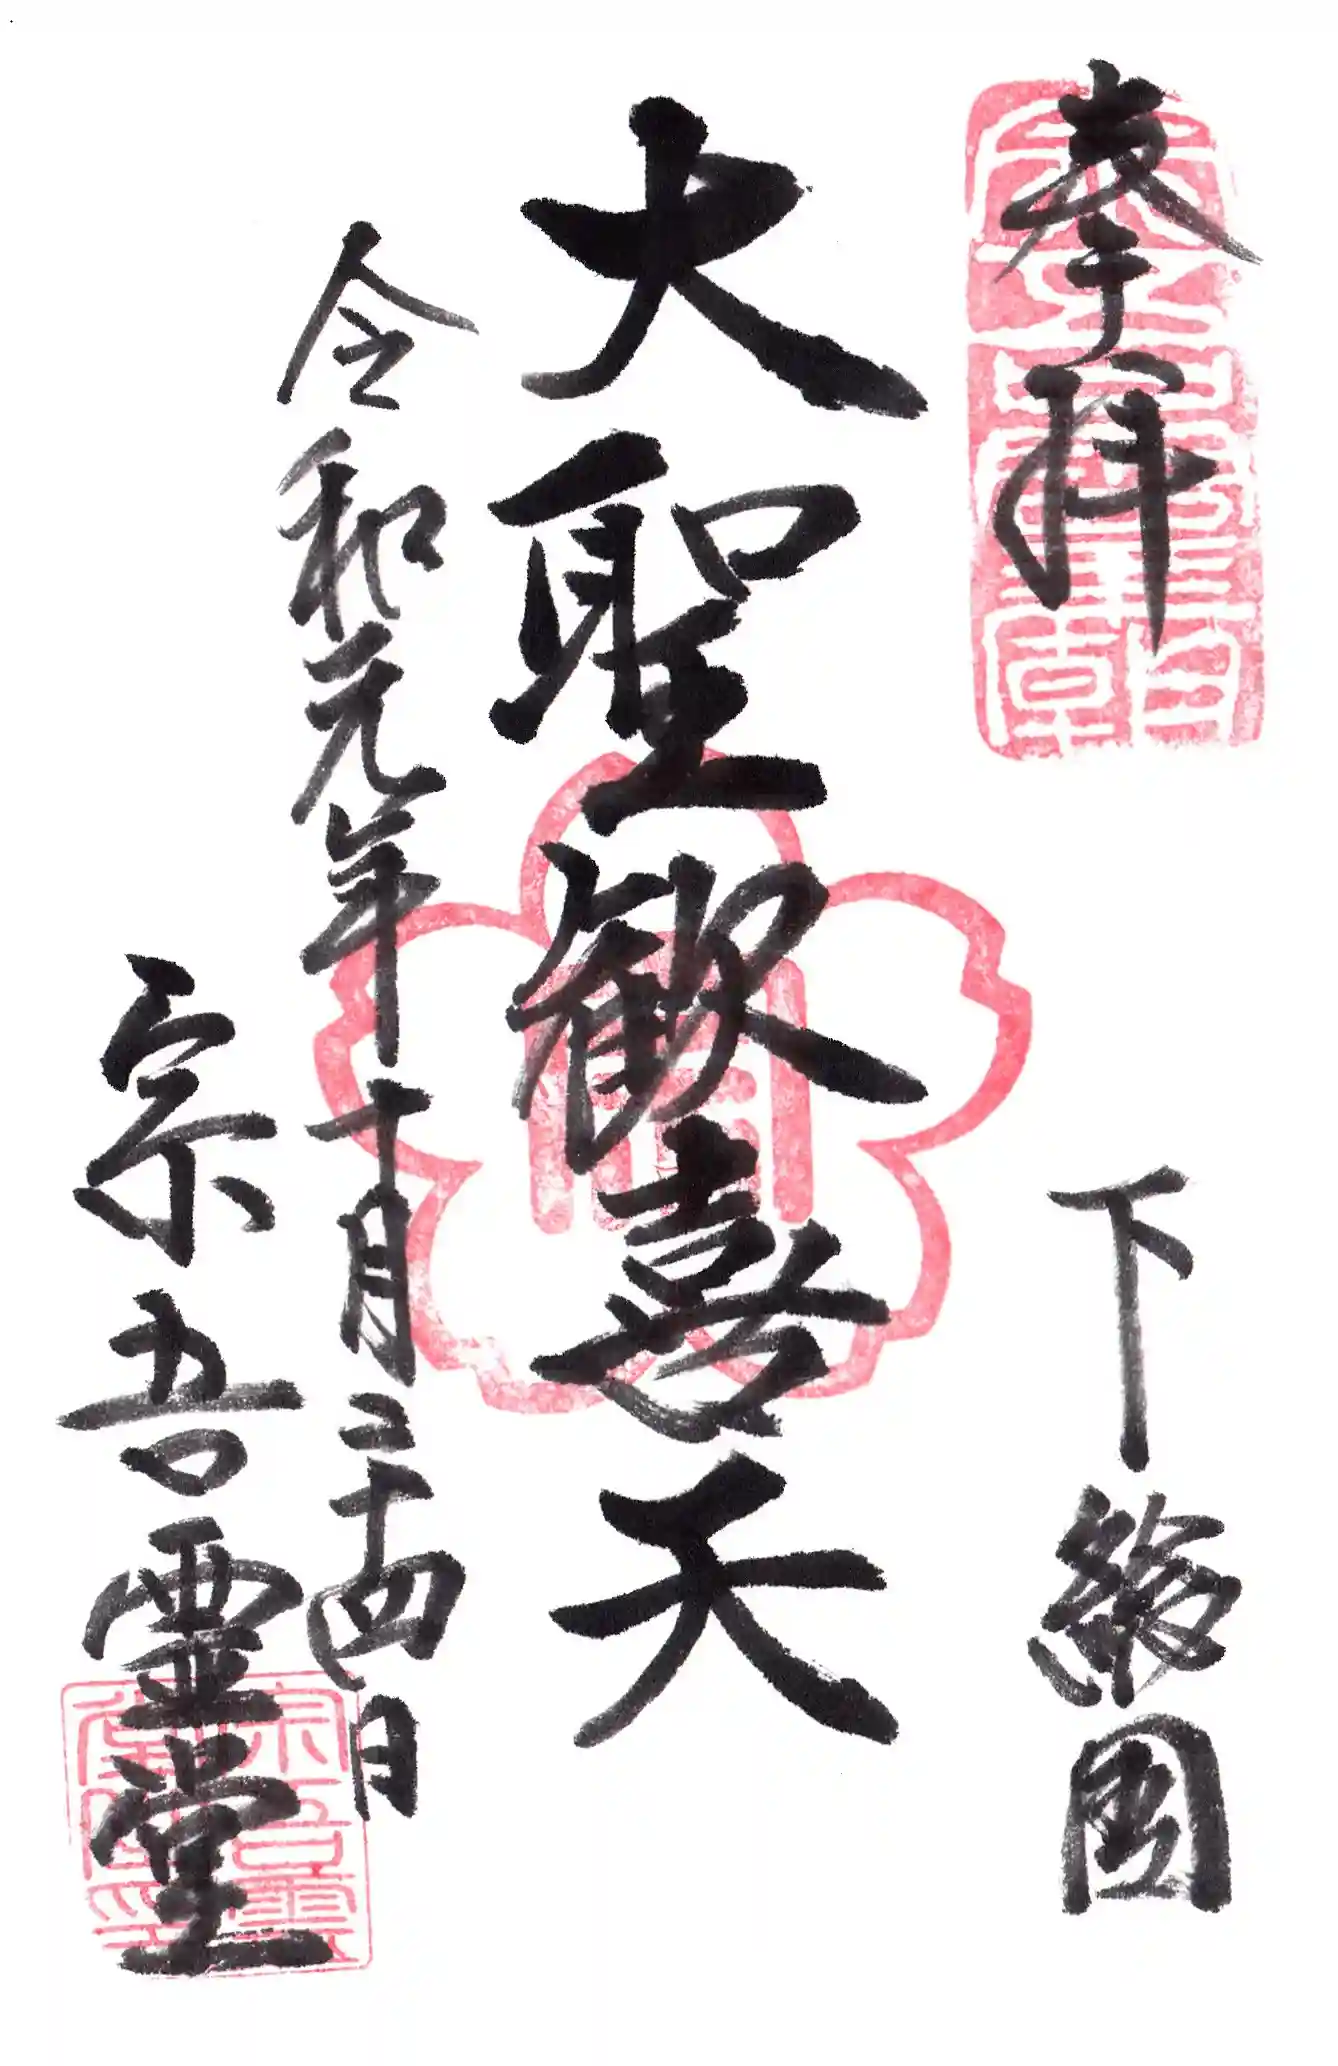 奉拝
下総国
大聖歓喜天
令和元年十月二十四日
宗吾霊堂